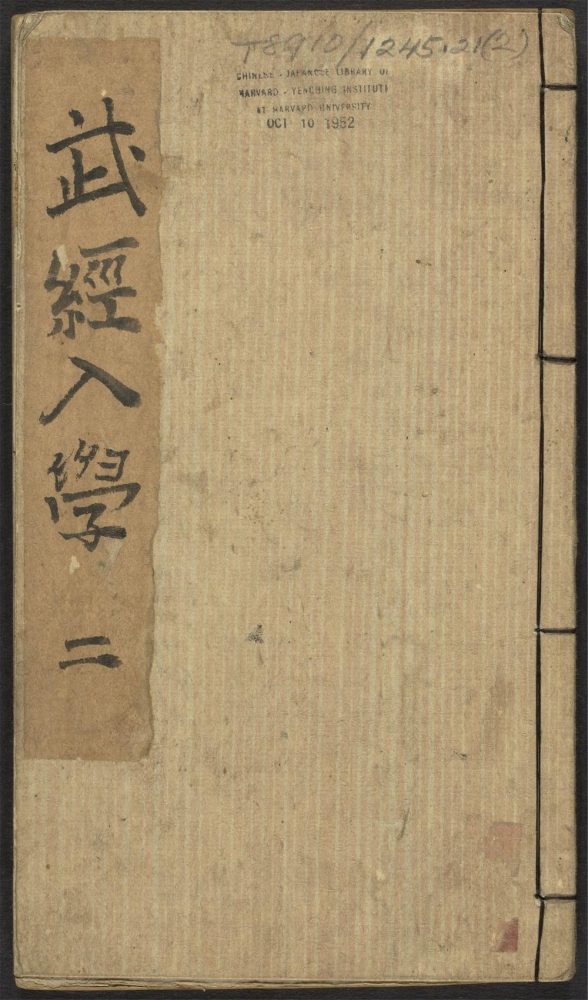 T8910/1245.21(2)
CHINESE - JAPANESE LIBRARY OF
HARVARD - YENCHING INSTITUTE
AT HARVARD UNIVERSITY
OCT 10 1952
武經入學 二